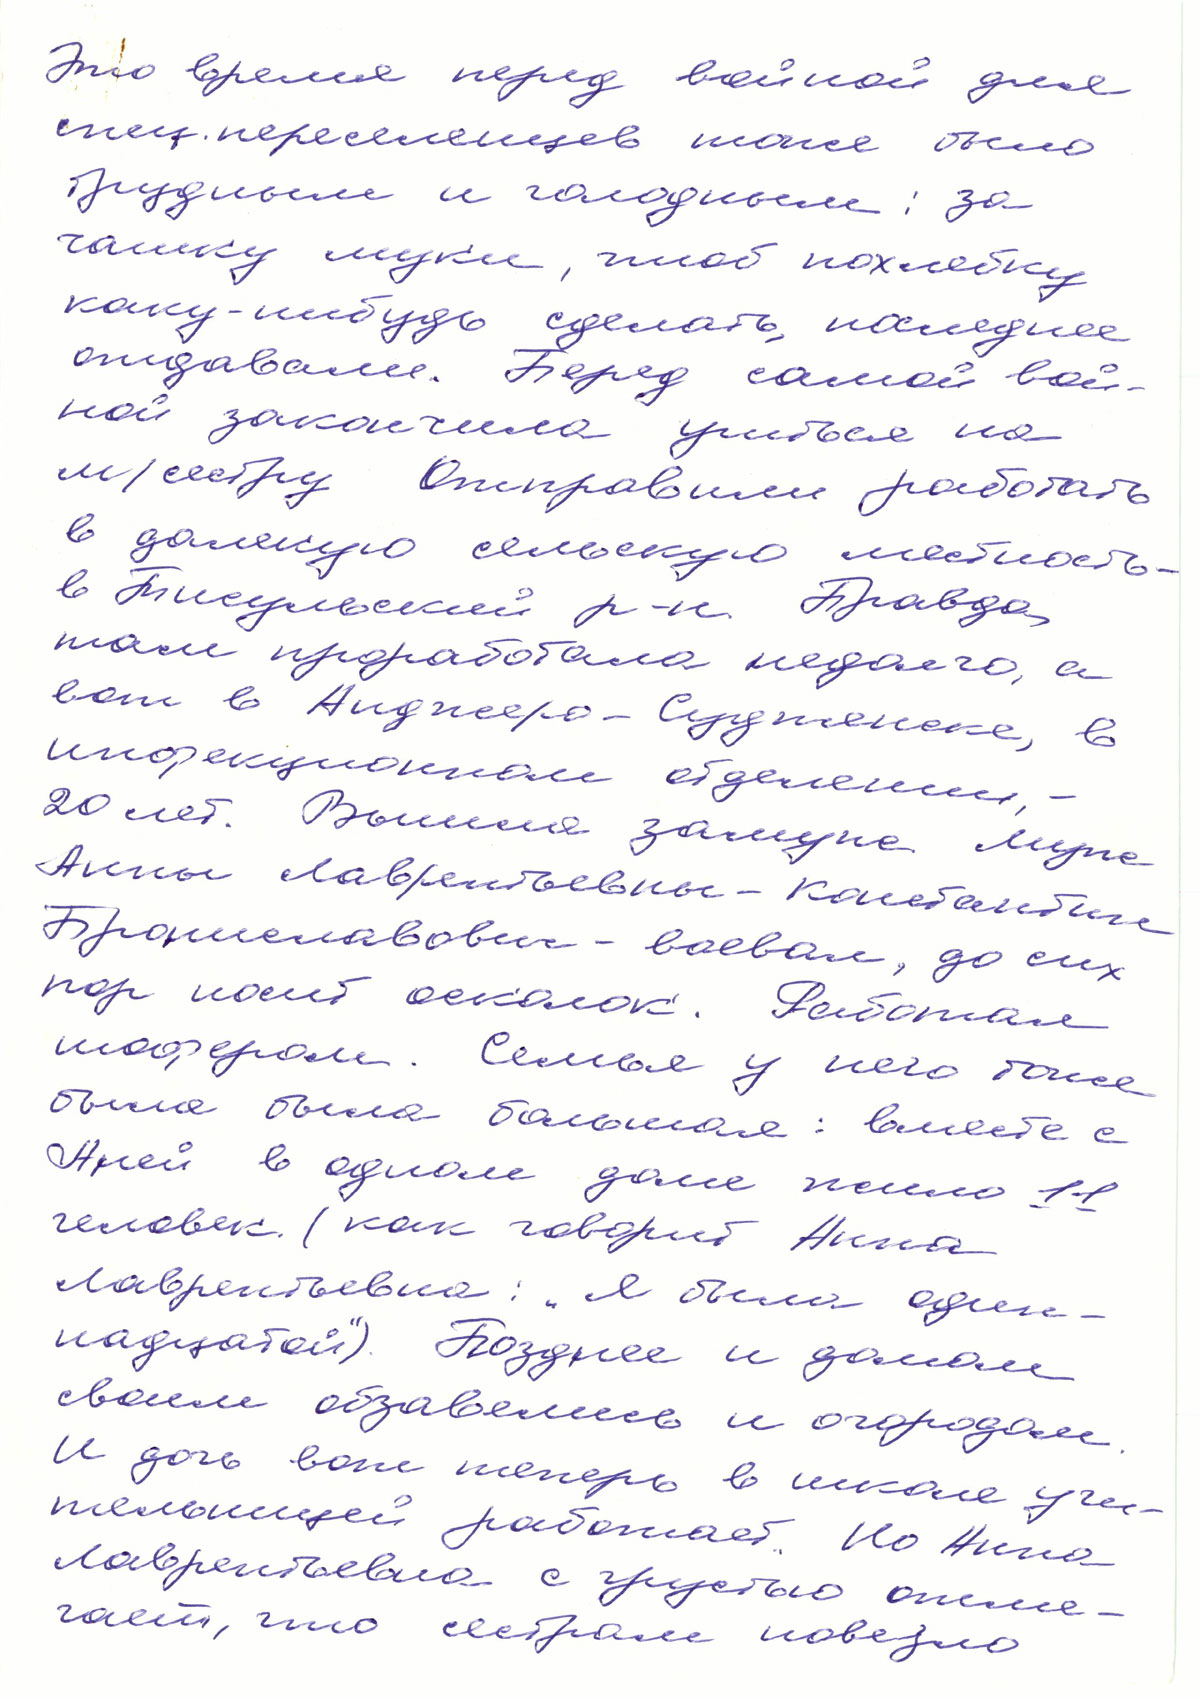 Это время перед войной для
спец.переселенцев тоже было
трудным и голодным: за
чашку муки, чтоб похлебку
каку-нибудь сделать, последнее
отдавали. Перед самой вой-
ной закончила учиться на
м/сестру Отправили работать
в далекую сельскую местность-
в Тисульский р-н. Правда,
там проработала недолго, а
вот в Анджеро-Судженске, в
инфекционном отделении, -
20 лет. Вышла замуж. Муж
Анны Лаврентьевны - Константин
Брониславович - воевал, до сих
пор носит осколок. Работал
шофером. Семья у него тоже
была была большая: вместе с
Аней в одном доме жило 11
человек. (как говорит Анна
Лаврентьевна: „Я была один-
надцатой"). Позднее и домом
своим обзавелись и огородом.
И дочь вот теперь в школе учи-
тельницей работает. Но Анна
Лаврентьевна с грустью отме-
чает, что сестрам повезло